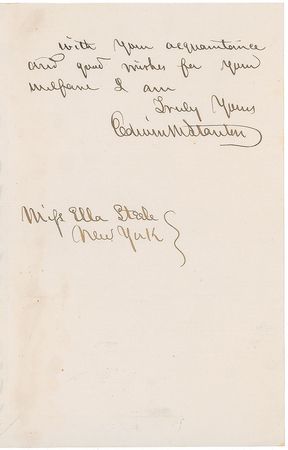 with your acquaintance
and good wishes for your
welfare I am
Truly Yours
Edwin M Stanton
Miss Ella Steele
New York